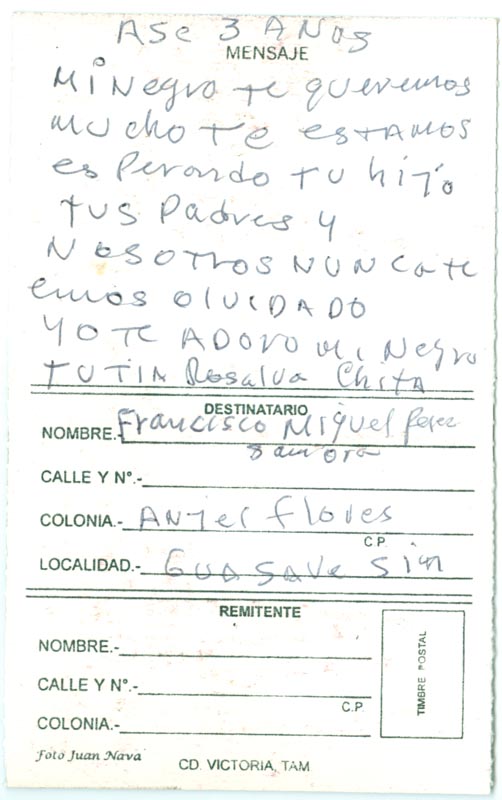 Ase 3 Años
MENSAJE
Mi Negro te queremos
mucho te estamos
esperando tu hijo
tus padres y
nosotros nunca te
emos olvidado
yo te adoro mi Negro
tu tia Rosalva Chita
DESTINATARIO
NOMBRE.- Francisco Miguel Perez
samora
CALLE Y N°.-
COLONIA.- Anjel flores
C.P.
LOCALIDAD.- Guasave Sin
REMITENTE
NOMBRE.-
CALLE Y N°.-
C.P.
COLONIA.-
TIMBRE POSTAL
Foto Juan Nava
CD. VICTORIA, TAM